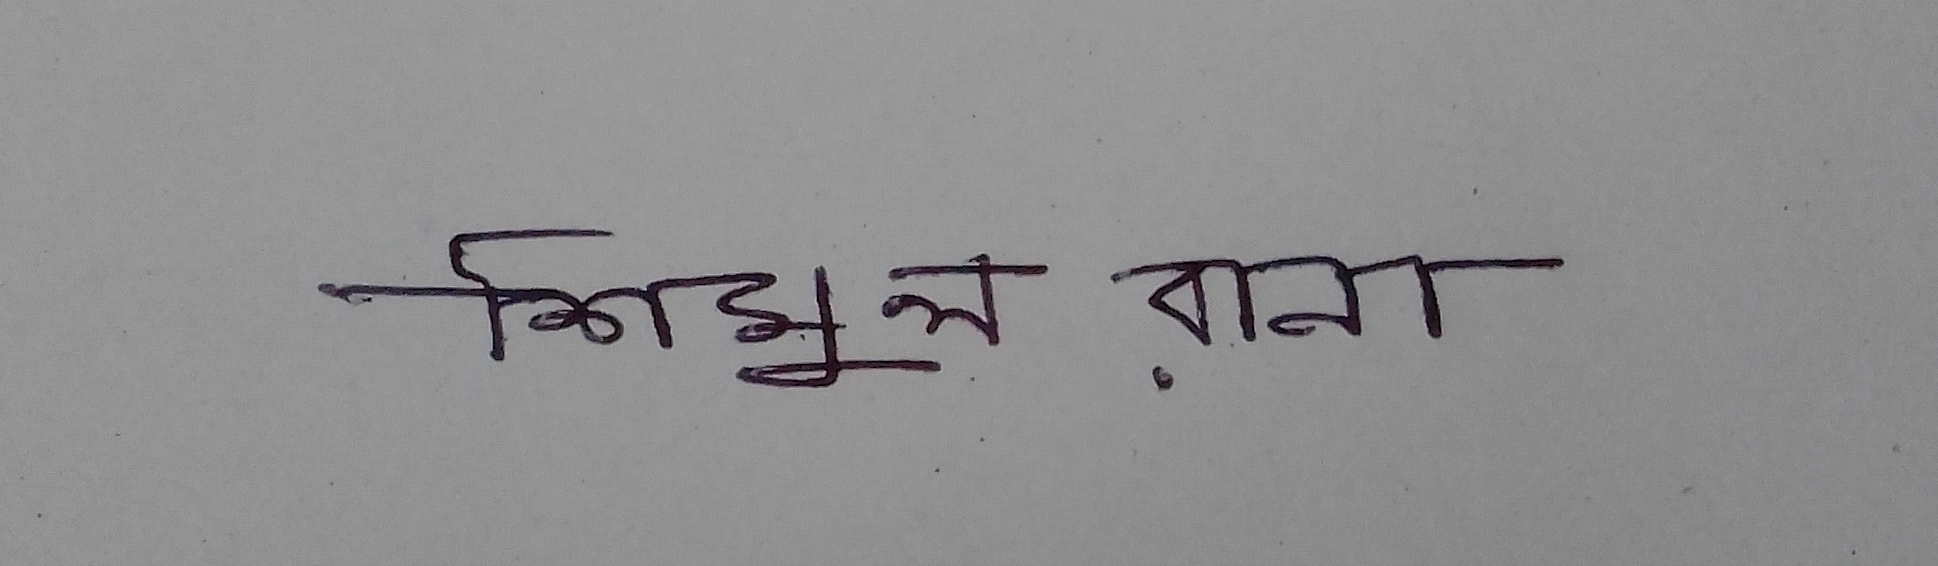 শিমুল রানা